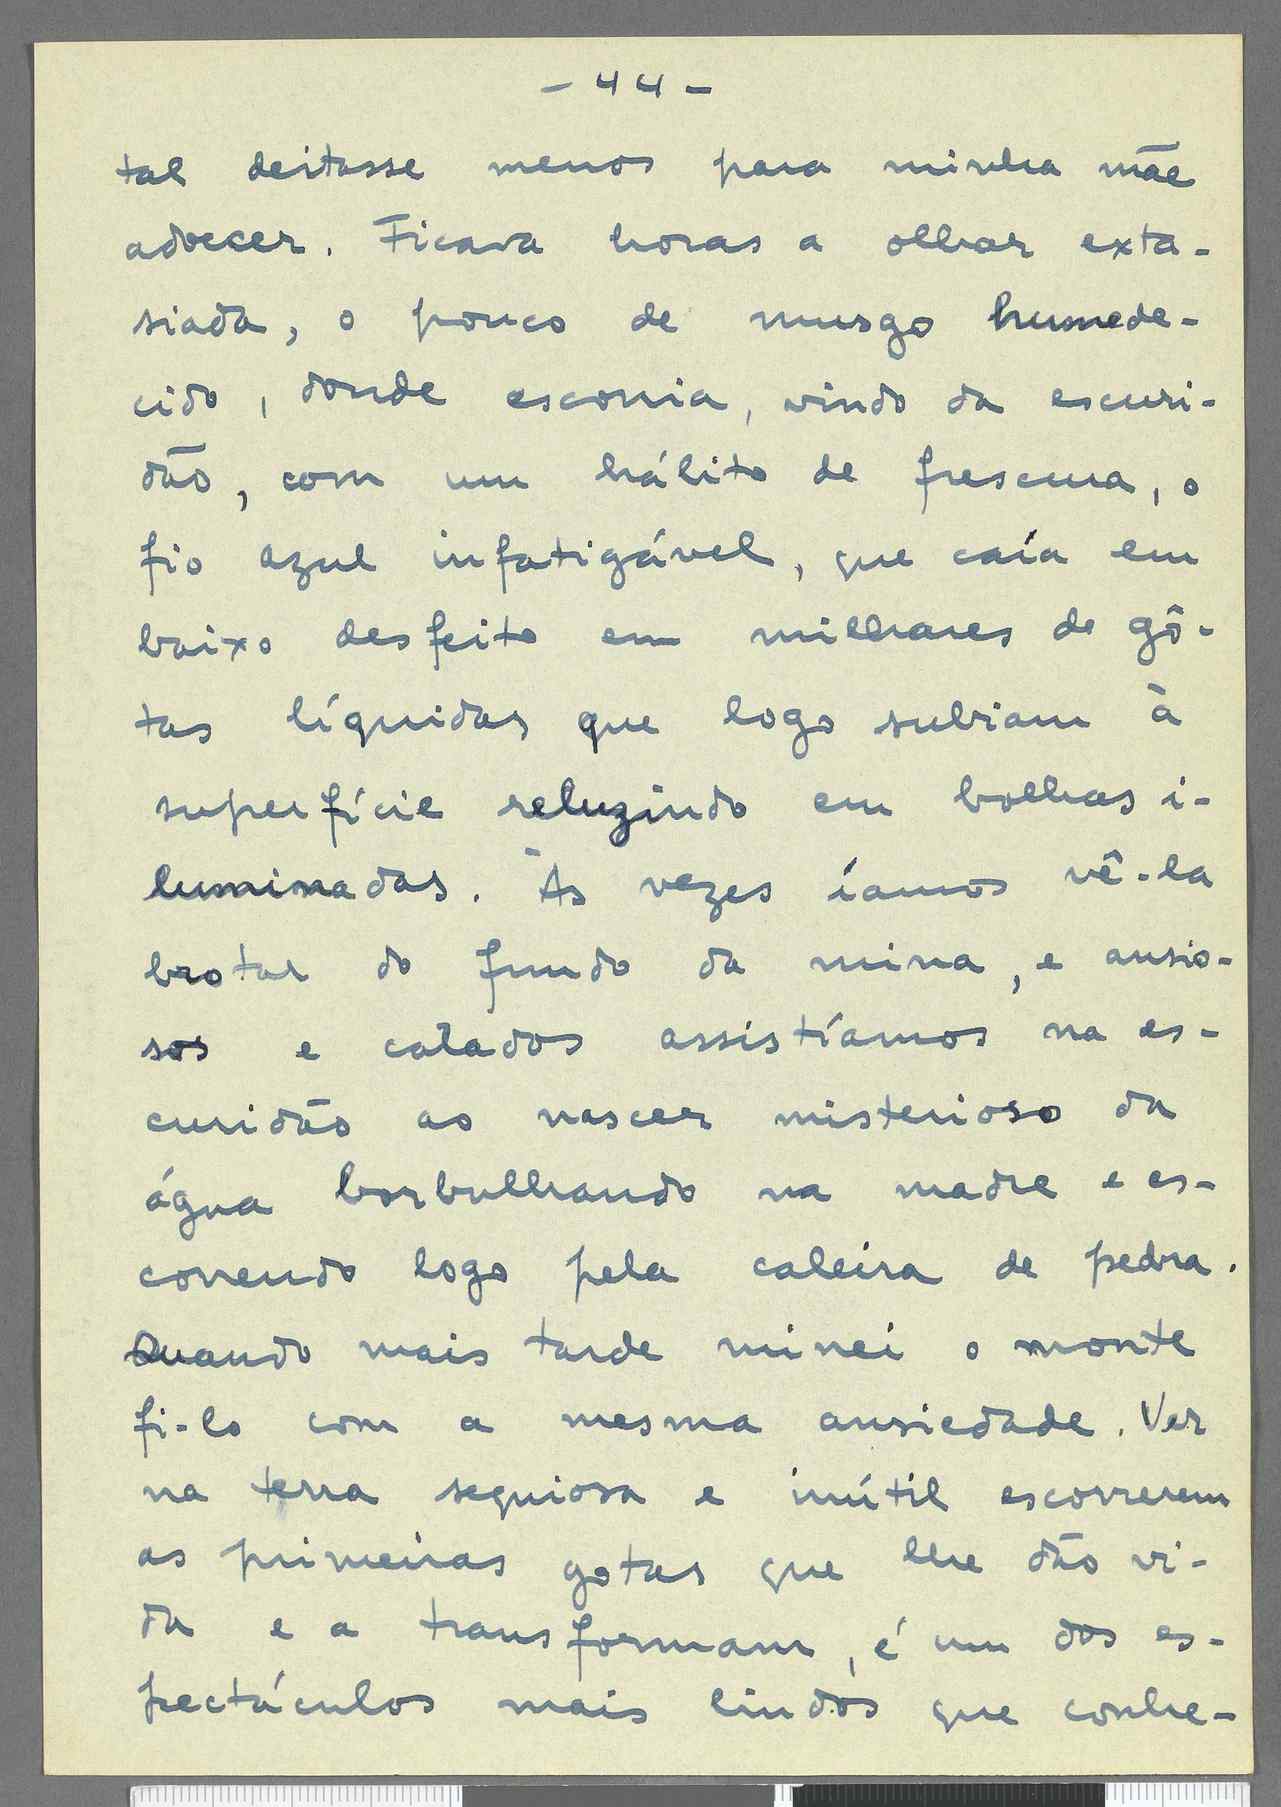 - 44 -
tal deitasse menos para minha mãe
adoecer. Ficava horas a olhar exta-
siada, o pouco de musgo humede-
cido, donde escorria, vindo da escuri-
dão, com um hálito de frescura, o
fio azul infatigável, que caía em
baixo desfeito em milhares de gô-
tas líquidas que logo subiam à
superfície reluzindo em bolhas i-
luminadas. Às vezes íamos vê-la
brotar do fundo da mina, e ansio-
sos e calados assistíamos na es-
curidão ao nascer misterioso da
água borbulhando na madre e es-
correndo logo pela caleira de pedra.
Quando mais tarde minei o monte
fi-lo com a mesma ansiedade. Ver
na terra sequiosa e inútil escorrerem
as primeiras gotas que lhe dão vi-
da e a transformam, é um dos es-
pectáculos mais lindos que conhe-